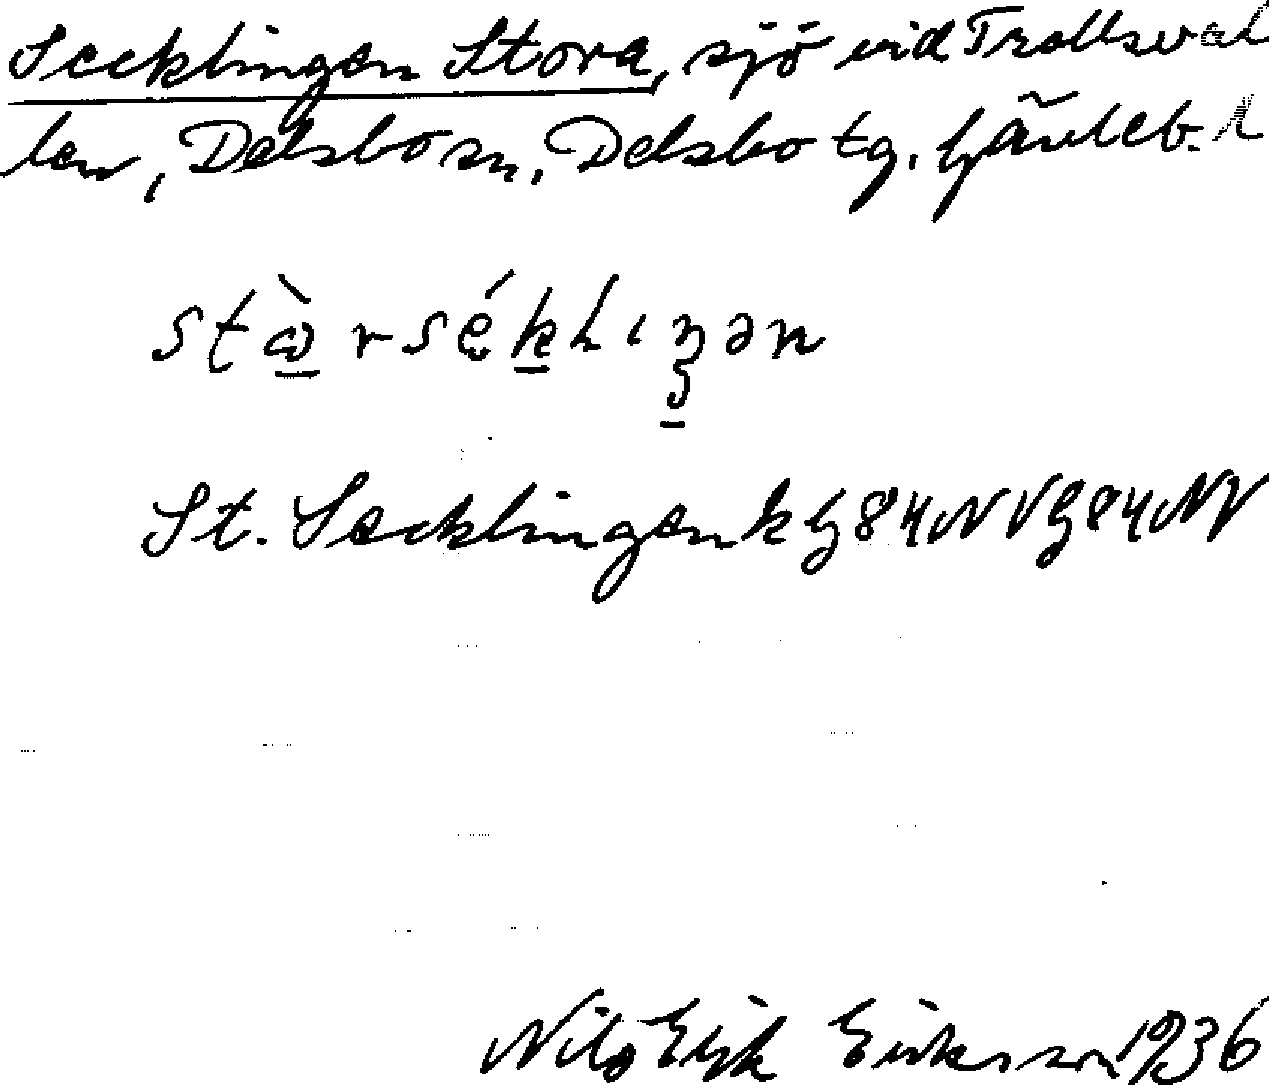 Secklingen Stora, sjö vid Trollsval
len, Delsbo sn, Delsbo tg. Gävleb. l
stɷ̀rsékḷıŋən
St. Secklingen k G84NV G84NV
Nils Erik Eriksson 1936